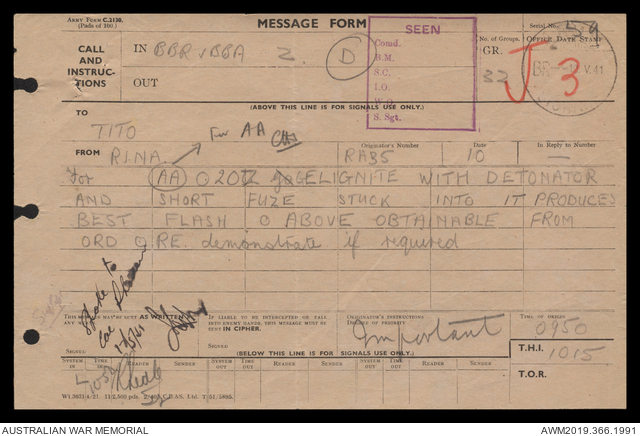 ARMY FORM C.2128.
(Pads of 100.)
MESSAGE FORM
Serial No. 59
CALL AND INSTRUCTIONS
IN BBR v BBA 2. D
OUT
SEEN
Comd.
B.M.
S.C.
I.O.
W.O.
S. Sgt.
No. of Groups.
GR. 32
OFFICE DATE STAMP
V.41
J 3
(ABOVE THIS LINE IS FOR SIGNALS USE ONLY.)
TO
TITO
For AA
FROM RINA
Originator's Number RA35
Date 10
In Reply to Number —
For (AA) O 20TZ GELIGNITE WITH DETONATOR
AND SHORT FUZE STUCK INTO IT PRODUCES
BEST FLASH O ABOVE OBTAINABLE FROM
ORD O RE. demonstrate if required
Spoke to
THIS MESSAGE MAY BE SENT AS WRITTEN BY ANY MEANS
SIGNED
IF LIABLE TO BE INTERCEPTED OR FALL INTO ENEMY HANDS, THIS MESSAGE MUST BE SENT IN CIPHER.
SIGNED
ORIGINATOR'S INSTRUCTIONS
DEGREE OF PRIORITY
Important
TIME OF ORIGIN
0950
(BELOW THIS LINE IS FOR SIGNALS USE ONLY.)
T.H.I. 1015
T.O.R.
SYSTEM IN
TIME IN
READER
SENDER
SYSTEM OUT
TIME OUT
READER
SENDER
SYSTEM OUT
TIME OUT
READER
SENDER
AUSTRALIAN WAR MEMORIAL
AWM2019.366.1991